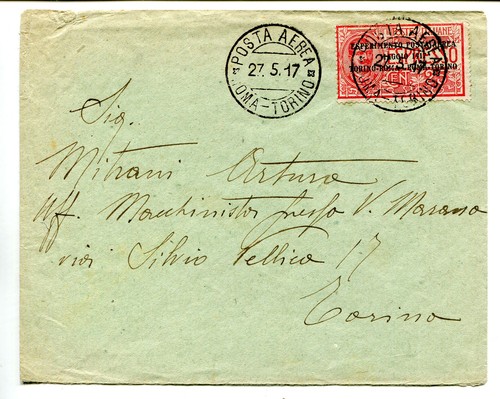 POSTA AEREA
27.5.17
ROMA-TORINO
ESPERIMENTO POSTA AEREA
MAGGIO 1917
TORINO-ROMA ROMA-TORINO
POSTA AEREA
27.5.17
ROMA-TORINO
Sig.
Mitrani Arturo
Uff. Macchinista presso V. Marano
via Silvio Pellico 17
Torino